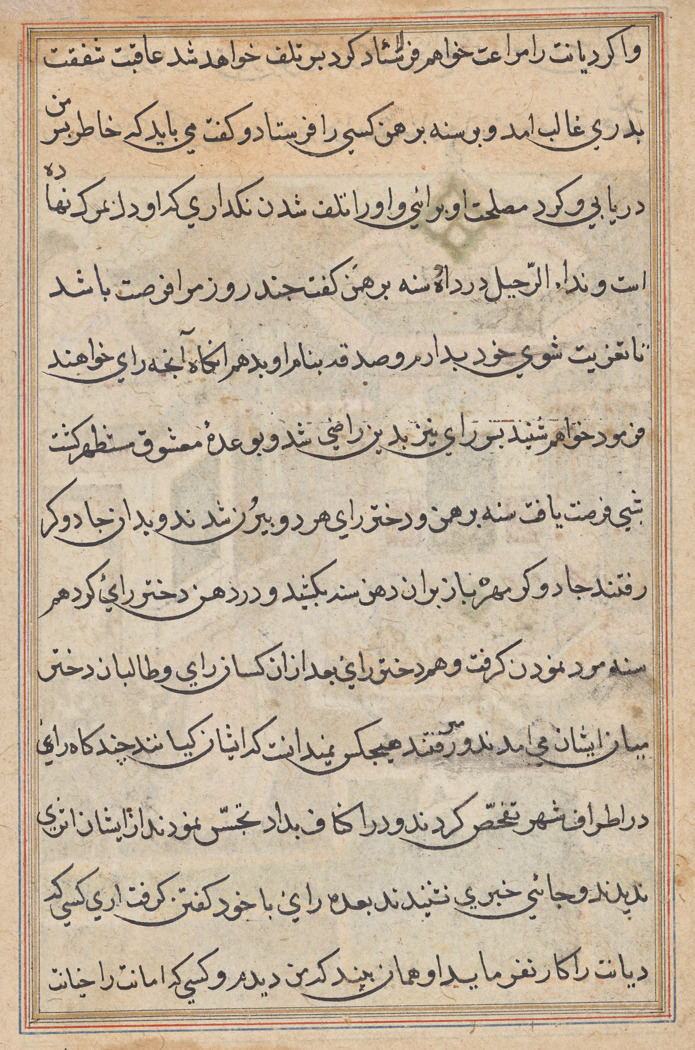 و اکر دیانت را مراعت خواهم فرستاد کرد بسر تلف خواهد شد عاقبت شفقت
بدری غالب امد و بر سنه برهمن کسی را فرستاد و کفت می باید که خاطر بسر من
دریابی و کرد مصلحت او برائی و او را تلف شدن نکداری که او دل بمرک نهاده
است و نداء الرّحیل در داده سنه برهمن کفت جند روز مرا فرصت باشد
تا تعزیت شوی خود بدارم و صدقه بنام او بدهم انکاه آنجه رای خواهند
فرمود خواهم شنید بسر رای نیز بدین راضی شد و بوعدهٔ معشوق مستظهر کشت
شبی فرصت یافت سنه برهمن و دختر رای هر دو بیرُون شدند و بدان جادوکر
رفتند جادوکر مهره باز بران دهن سنه بکشید و در دهن دختر رایٔ کرد هم
سنه مرد نمودن کرفت و هم دختر رایٔ بعد ازان کسان رای و طالبان دختر
میان ایشان می امدند و می رفتند هیجکس نمیدانت که ایشان کیانند چند کاه رایٔ
در اطراف شهر تفحّص کردند و در اکناف بداد تجسّس نمودند از ایشان اثری
ندیدند و جائی خبری نشنیدند بعده رایٔ با خود کفتن کرفت اری کسی که
دیانت را کار نفرماید او همان بیند که من دیدم و کسی که امانت را خیانت